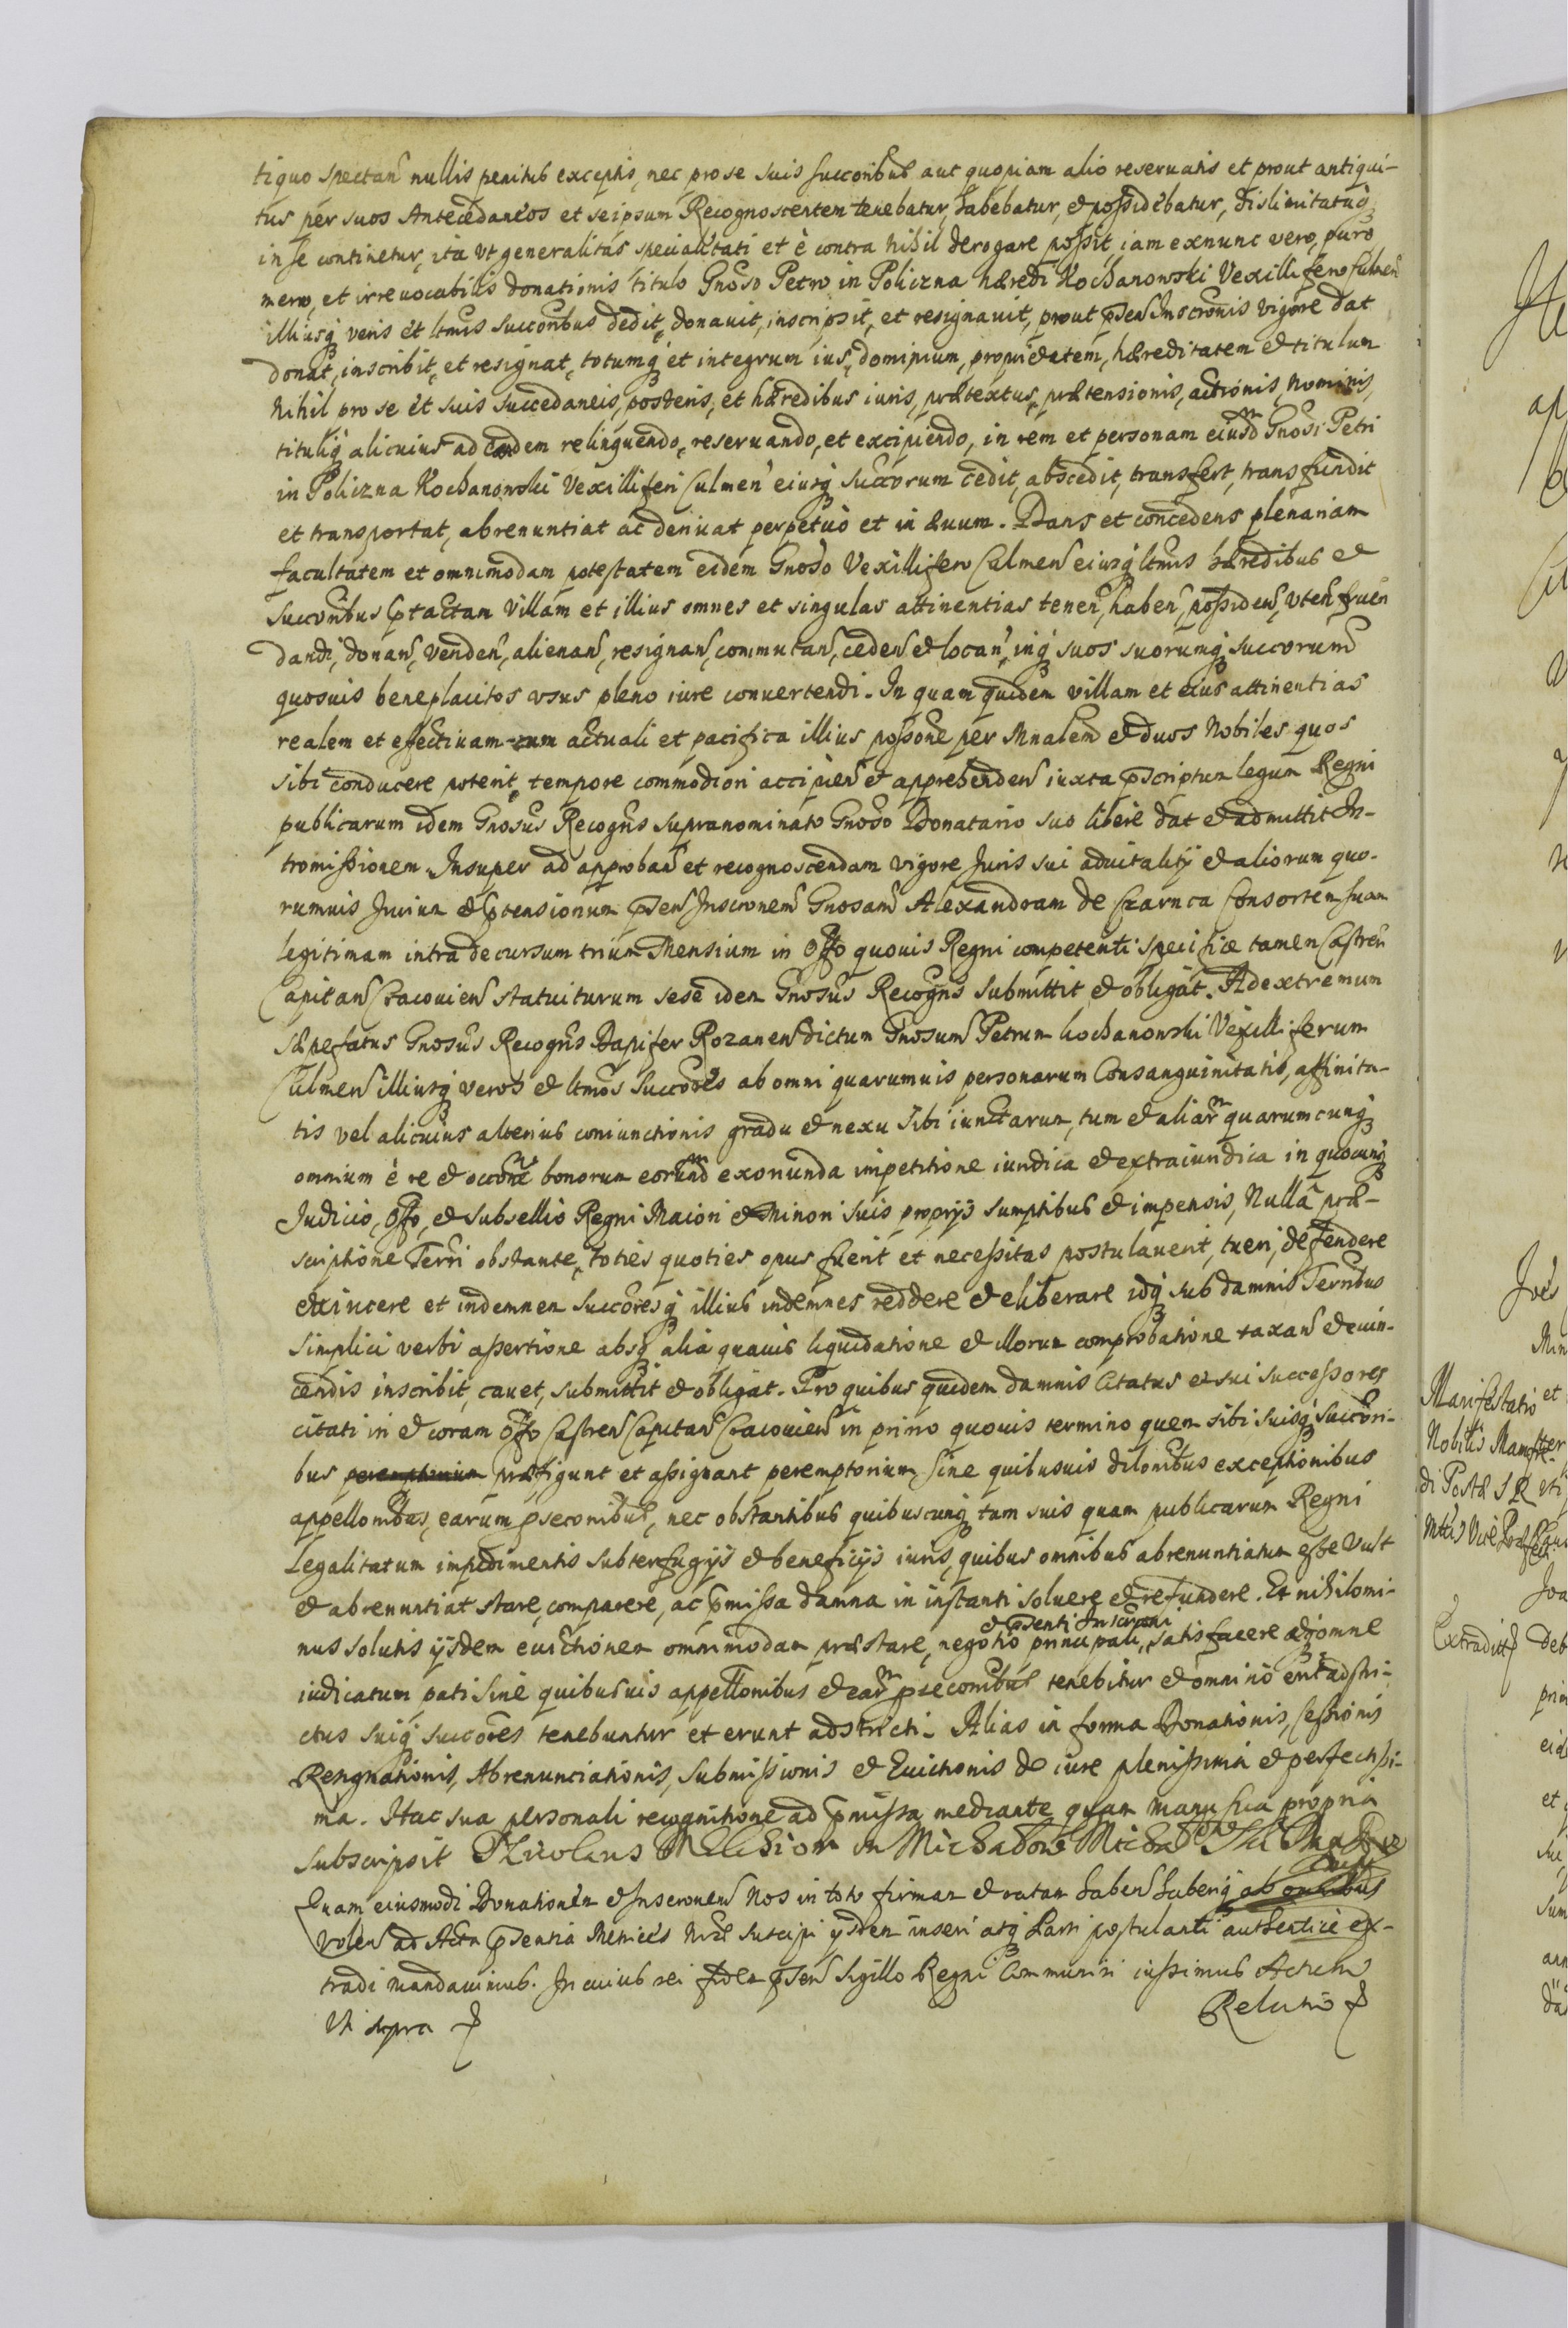 tiquo spectan nullis penitus exceptis, nec pro se suis succoribus aut quopiam alio reservatis et prout antiqui-
tus per suos Antecedaneos et seipsum Recognoscentem tenebatur, habebatur, et possidebatur, dislimitatuq
in se continetur, ita vt generalitas specialitati et è contra nihil derogare possit, iam exnunc vero, puro
mero, et irreuocabilis donationis titulo Gnoso Petro in Policzna hæredi Kochanowski Vexillifero Culmen
illiusq veris et ltmis succoribus dedit, donauit, inscripsit, et resignauit, prout psen Inscronis vigore dat
donat, inscribit, et resignat, totumq et integrum ius, dominium, proprietatem, hæreditatem et titulum
Nihil pro se et suis succedaneis, posteris, et hæredibus iuris, prætextus, prætensionis, actionis, Nominis,
tituliq alicuius ad eandem relinquendo, reseruando, et excipiendo, in rem et personam eiusd Gnosi Petri
in Policzna Kochanowski Vexilliferi Culmen eiusq succorum cedit, abscedit, transfert, transfundit
et transportat, abrenuntiat ac deriuat perpetuò et in æuum. Dans et concedens plenariam
facultatem et omnimodam potestatem eidem Gnoso Vexillifero Culmen eiusq ltmis hæredibus et
succoribus ptactam villam et illius omnes et singulas attinentias tenen, haben, possiden, vten, fruen
dandi, donan, venden, alienan, resignan, commutan, ceden et locan, inq suos suorumq succorum
quosuis beneplacitos vsus pleno iure conuertendi. In quam quidem villam et eius attinentias
realem et effectiuam cum actuali et pacifica illius possone per Mnalem et duos Nobiles quos
sibi conducere poterit, tempore commodiori accipien et apprehenden iuxta pscriptum legum Regni
publicarum idem Gnosus Recogns supranominato Gnoso Donatario suo liberè dat et admittit In-
tromissionem. Insuper ad approban et recognoscendam vigore Juris sui aduitalitij et aliorum quo-
rumuis Jurium et ptensionum psen Inscronem Gnosam Alexandram de Czarnca Consortem suam
legitimam intra decursum trium Mensium in Offo quouis Regni competenti specificè tamen Castren
Capitan Cracouien statuiturum sese idem Gnosus Recogns submittit et obligat. Ad extremum
sæpefatus Gnosus Recogns Dapifer Rozanen dictum Gnosum Petrum Kochanowski Vexilliferum
Culmen illiusq veros et ltmos succores ab omni quarumuis personarum Consanguinitatis, affinita-
tis vel alicuius alterius coniunctionis gradu et nexu sibi iunctarum, tum et aliar quarumcunq
omnium è re et occone bonorum eorund exoriunda impetitione iuridica et extraiuridica in quocunq
Judicio, Offo, et Subsellio Regni Maiori et Minori suis proprijs sumptibus et impensis, Nulla præ-
scriptione Terri obstante, toties quoties opus fuerit et necessitas postulauerit, tueri, defendere
euincere et indemnem succoresq illius indemnes reddere et eliberare idq sub damnis Terribus
simplici verbi assertione absq alia quauis liquidatione et illorum comprobatione taxan et euin-
cendis inscribit, cauet, submittit et obligat. Pro quibus quidem damnis Citatus et sui successores
citati in et coram Offo Castren Capitan Cracouien in primo quouis termino quem sibi suisq succori-
bus peremptorium præfigunt et assignant peremptorium sine quibusuis dilonibus exceptionibus
appellonibus, earum psecornibus, nec obstantibus quibuscunq tam suis quam publicarum Regni
Legalitatum impedimentis subterfugijs et beneficijs iuris, quibus omnibus abrenuntiatum esse vult
et abrenuntiat stare, comparere, ac pmissa damna in instanti soluere et refundere. Et nihilomi-
nus solutis ijsdem euictionem omnimodam præstare, negotio principali, et psenti Inscriptioni satisfacere adqomne
iudicatum pati sine quibusuis appellonibus et ear psecornibus tenebitur et omnino erit adstri-
ctus suiq succores tenebuntur et erunt adstricti. Alias in forma Donationis, Cessionis
Resignationis, Abrenunciationis, Submissionis et Euictionis de iure plenissima et perfectissi-
ma. Hac sua personali recognitione ad pmissa mediante quam manu sua propria
subscripsit Nicolaus Melchior in
Quam eiusmodi Donationem et Inscronem Nos in toto firmam et ratam haben haberiq ab omnibus
volen ad Acta psentia Metrices Nræ suscipi ijsdem inseri atq Parti postulanti authenticè ex-
tradi mandauimus. In cuius rei fidem psen sigillo Regni Communiri iussimus Actum
Vt supra
Relatio
Manifestatio et
Extraditt